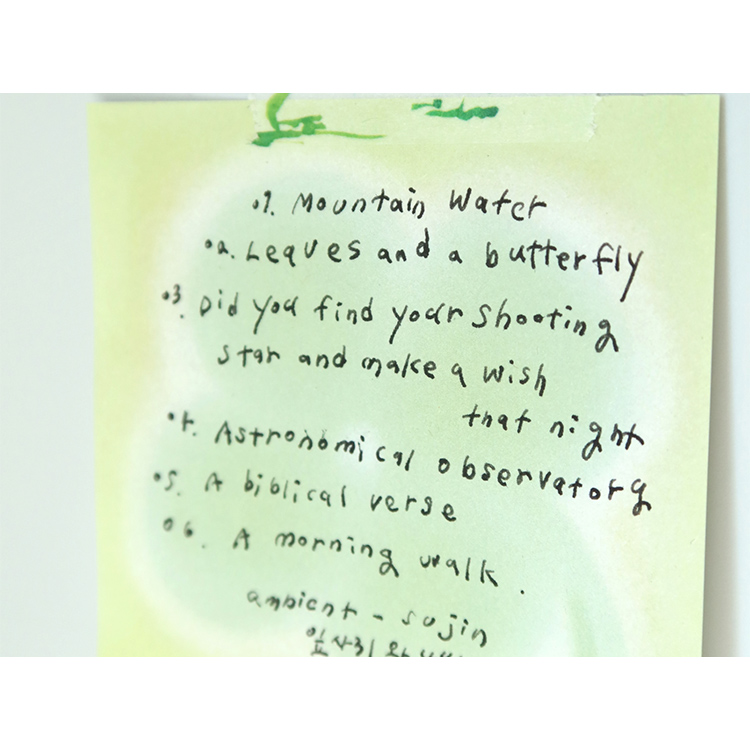 01. Mountain Water
02. Leaves and a butterfly
03. Did you find your shooting
star and make a wish
that night
04. Astronomical observatory
05. A biblical verse
06. A morning walk.
ambient - sujin